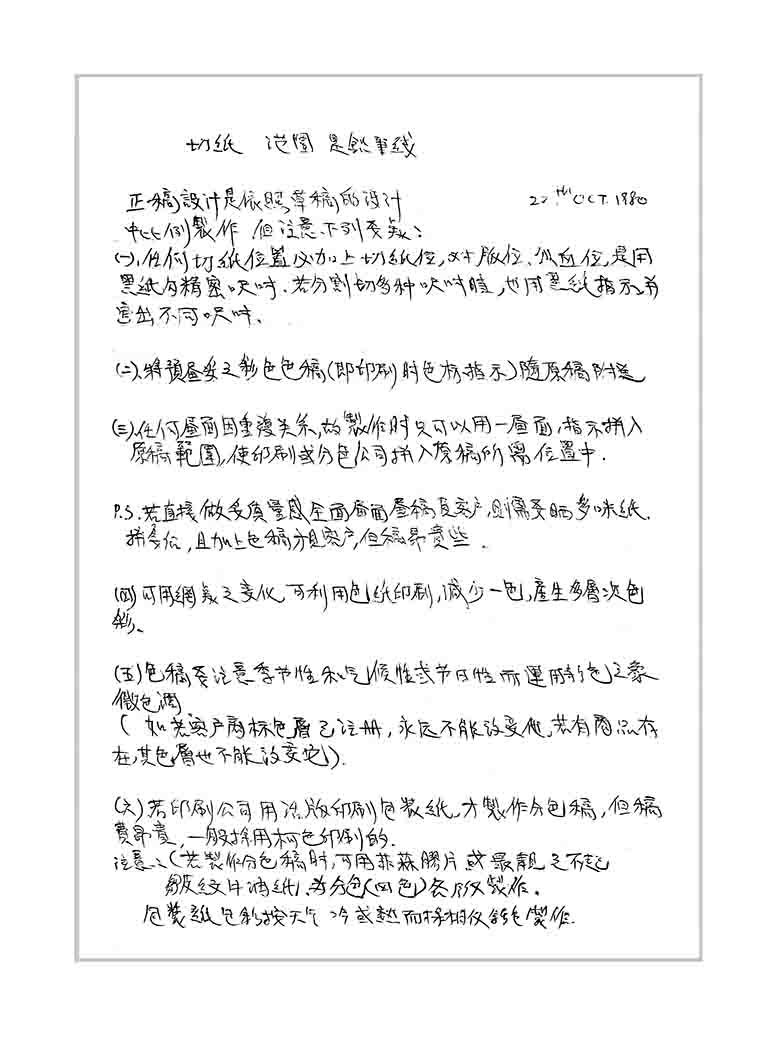 切纸 范围 是铅笔线
22TH OCT. 1980
正稿設计是依照草稿的设计
中比例製作 但注意下列要點:
(一).任何切纸位置必加上切纸位,对版位,是用
黑纸为精密呎吋.若分割切多种呎吋時,也用黑纸指示,并
寫出不同呎吋.
(二).将预画妥之彩色色稿(即印刷时色标指示)隨原稿附送
(三).任何画面因重複关系,故製作时只可以用一画面,指示拼入
原稿範圍,使印刷或分色公司拼入原稿所需位置中.
P.S.若直接做多質量感全面画面画稿見客户,则需要晒多咪纸.
,且加上色稿才見客户,但稿昂貴些.
(四)可用網點之变化,可利用色纸印刷,减少一色,產生多層次色
彩.
(五)色稿要注意季节性和气候性或节日性而運用彩色之象
徵色调
(如若客户商标色層已注册,永远不能改变他,若有商品存
在,其色層也不能改变它).
(六)若印刷公司用版印刷包裝紙,才製作分色稿,但稿
費昂貴,一般採用柯色印刷的.
注意:(若製作分色稿时,可用菲菻膠片或最靚之不起
皺紋牛油纸,为分色(四色)各版製作.
包裝紙色彩按天气冷或熱而製作.